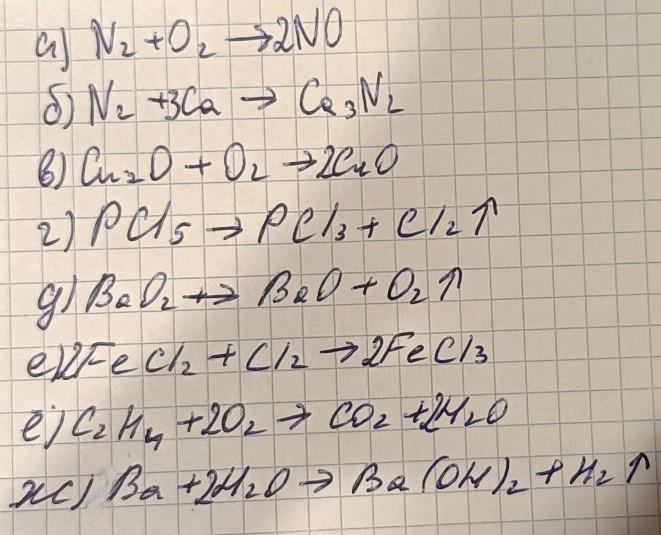 а) N₂ + O₂ → 2NO
б) N₂ + 3Ca → Ca₃N₂
в) Cu₂O + O₂ → 2CuO
г) PCl₅ → PCl₃ + Cl₂↑
д) BaO₂ → BaO + O₂↑
е) 2FeCl₂ + Cl₂ → 2FeCl₃
ё) C₂H₄ + 2O₂ → CO₂ + 2H₂O
ж) Ba + 2H₂O → Ba(OH)₂ + H₂↑